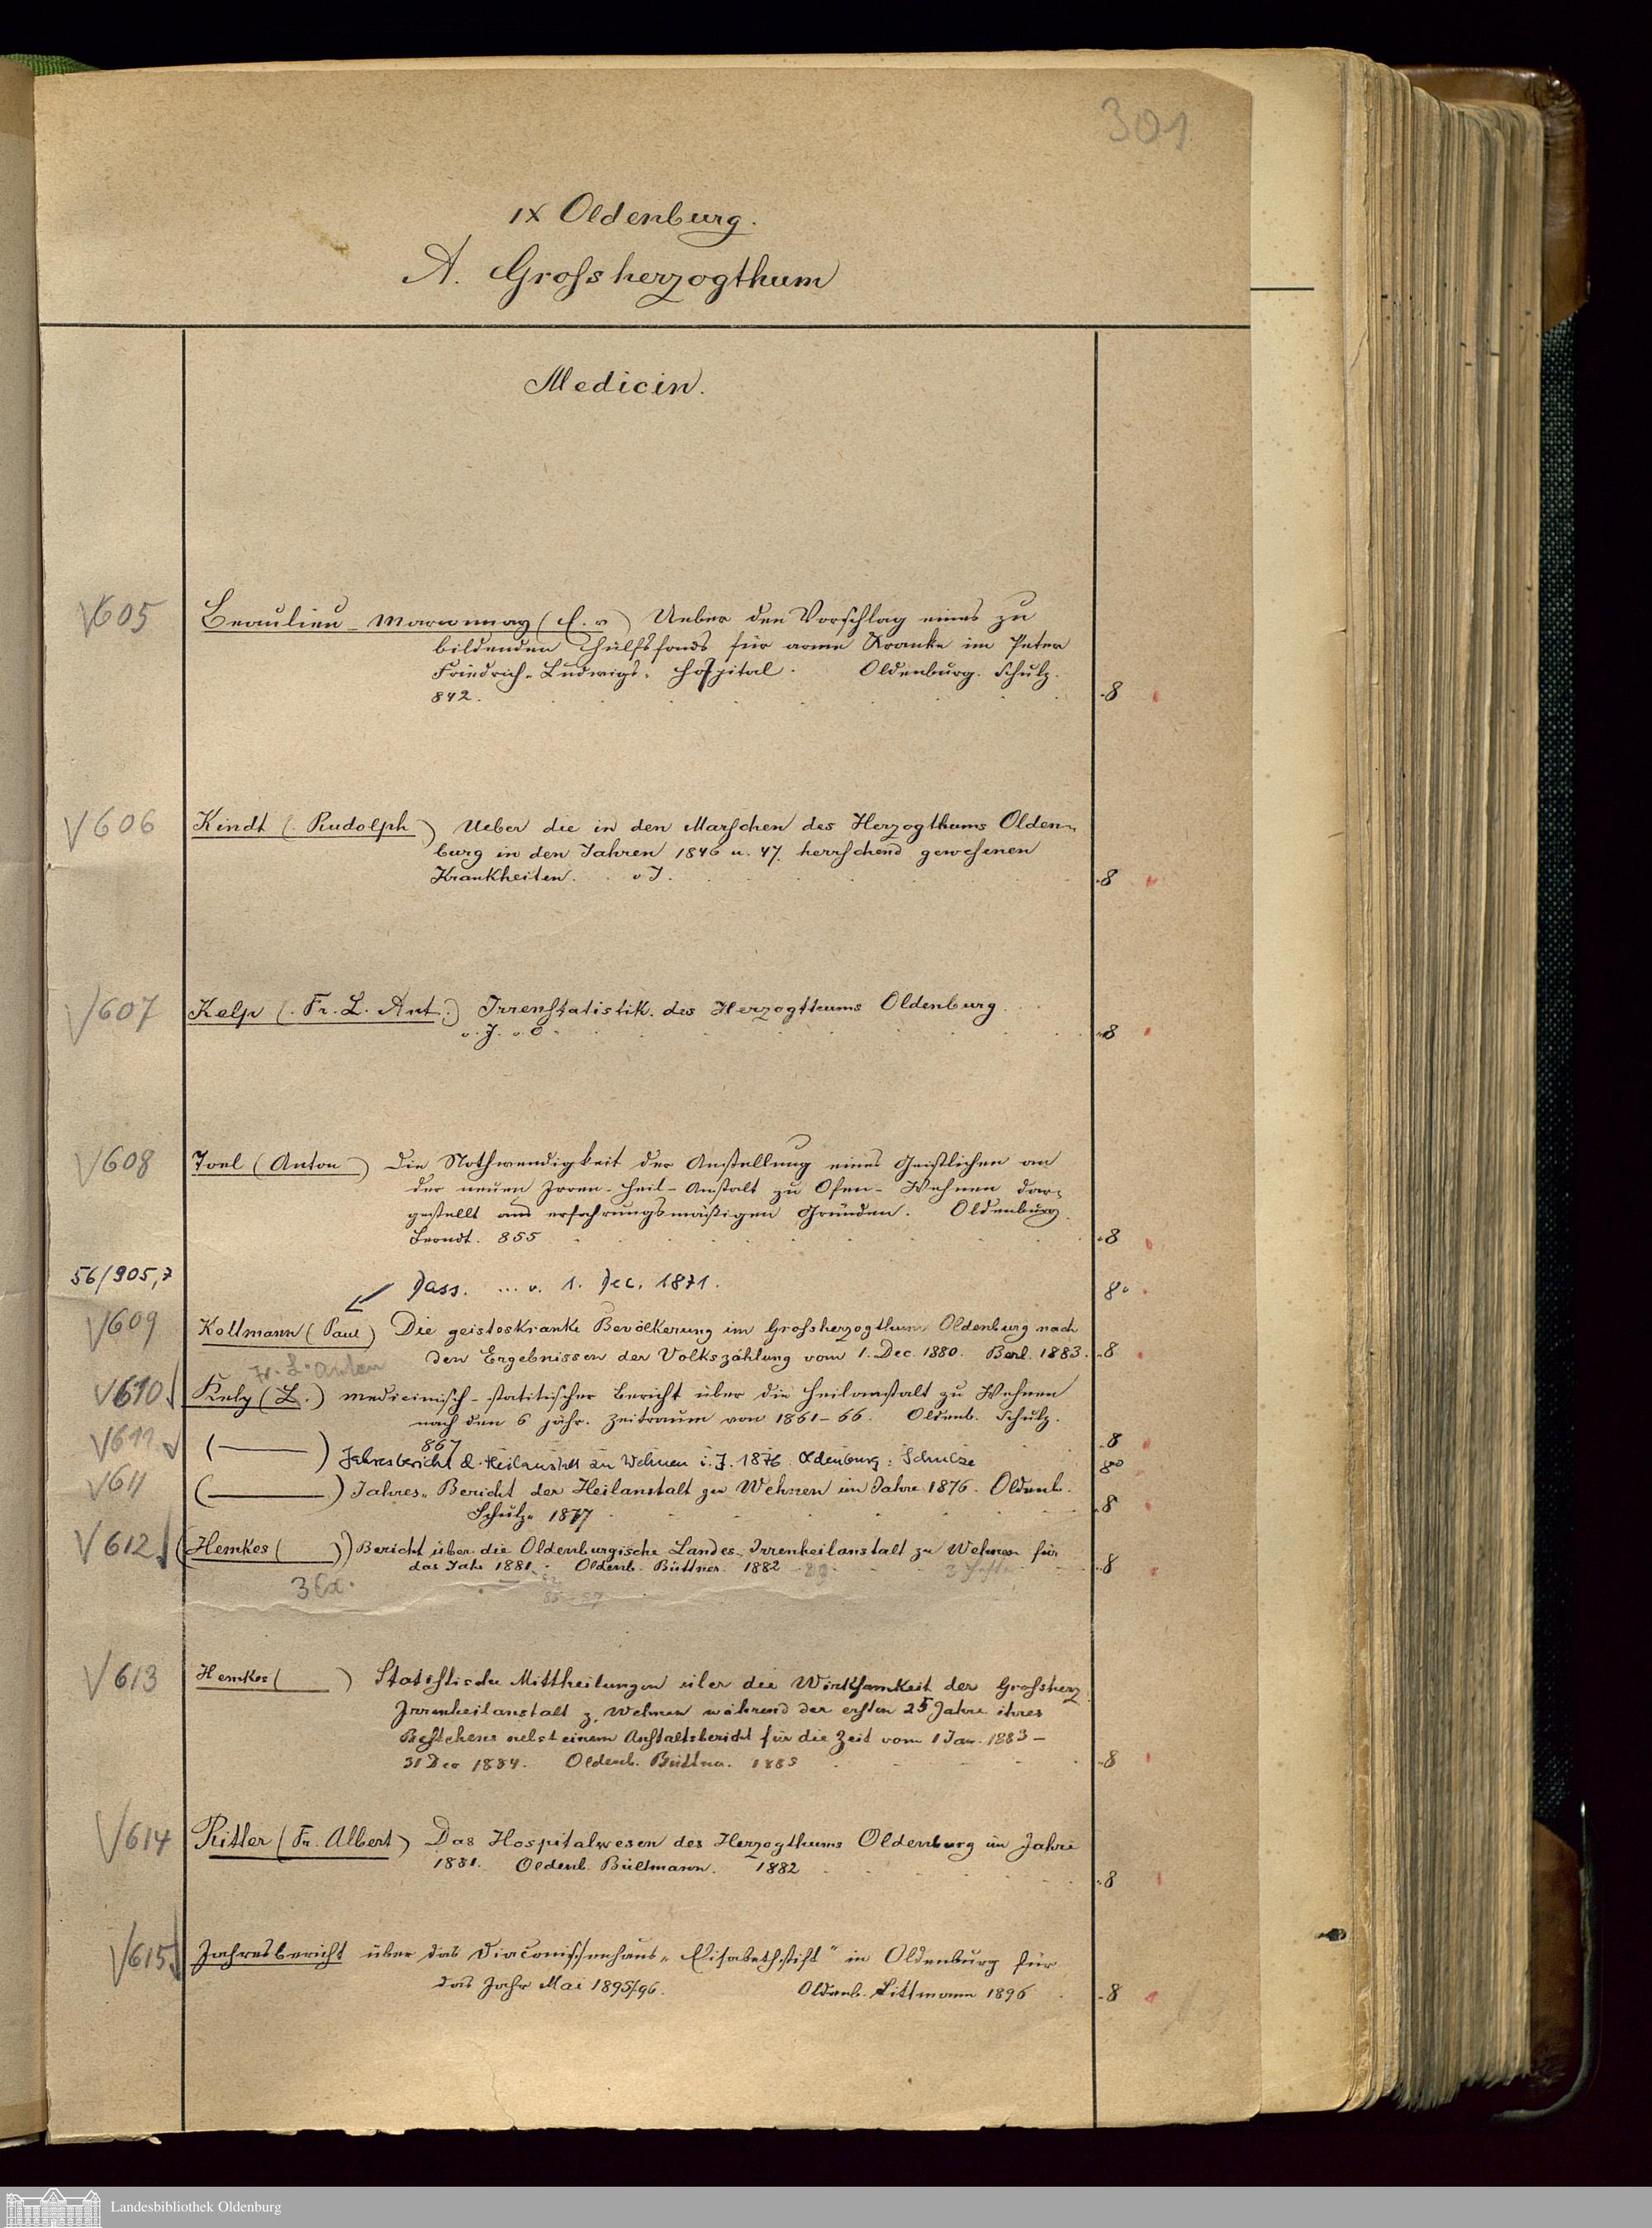 301
IX Oldenburg.
A. Grossherzogthum
Medicin.
V605 Beaulieu-Marconnay (E. v) Ueber den Vorschlag eines zu
bildenden Hülfsfonds für arme Kranke im Peter
Friedrich-Ludwigs-Hospital. Oldenburg. Schulz.
842. 8
V606 Kindt (Rudolph) Ueber die in den Marschen des Herzogthums Olden-
burg in den Jahren 1846 u. 47. herrschend gewesenen
Krankheiten. o J. 8
V607 Kelp (Fr. L. Ant.) Irrenstatistik des Herzogthums Oldenburg
o. J. o. O 8
V608 Toel (Anton) Die Nothwendigkeit der Anstellung eines Geistlichen an
der neuen Irren-Heil-Anstalt zu Ofen-Wehnen dar-
gestellt aus erfahrungsmäßigen Gründen. Oldenburg.
Berndt. 855 8
56/905,7 Dass. ... v. 1. Dec. 1871. 8°
V609 Kollmann (Paul) Die geisteskranke Bevölkerung im Grossherzogthum Oldenburg nach
den Ergebnissen der Volkszählung vom 1. Dec. 1880. Berl. 1883. 8
Fr. L. Anton
V610 Kelp (L.) medicinisch-statistischer Bericht über die Heilanstalt zu Wehnen
nach dem 6 jähr. Zeitraum von 1861-66. Oldenb. Schulz.
867 8
V611 (———) Jahresbericht d. Heilanstalt zu Wehnen i. J. 1876. Oldenburg: Schulze 8°
V611 (———) Jahres-Bericht der Heilanstalt zu Wehnen im Jahre 1876. Oldenb.
Schulz. 1877 8
V612 (Hemkes ( )) Bericht über die Oldenburgische Landes-Irrenheilanstalt zu Wehnen für
das Jahr 1881. Oldenb. Büttner. 1882 8
3 Ex.
85-87
V613 Hemkes ( ) Statistische Mittheilungen über die Wirksamkeit der Grossherz.
Irrenheilanstalt z. Wehnen während der ersten 25 Jahre ihres
Bestehens nebst einem Anstaltsbericht für die Zeit vom 1 Jan. 1883 –
31 Dec 1884. Oldenb. Büttner. 1885 8
V614 Ritter (Fr. Albert) Das Hospitalwesen des Herzogthums Oldenburg im Jahre
1881. Oldenb. Bültmann. 1882 8
V615 Jahresbericht über das Diaconissenhaus „Elisabethstift" in Oldenburg für
das Jahr Mai 1895/96. Oldenb. Littmann 1896 8
Landesbibliothek Oldenburg